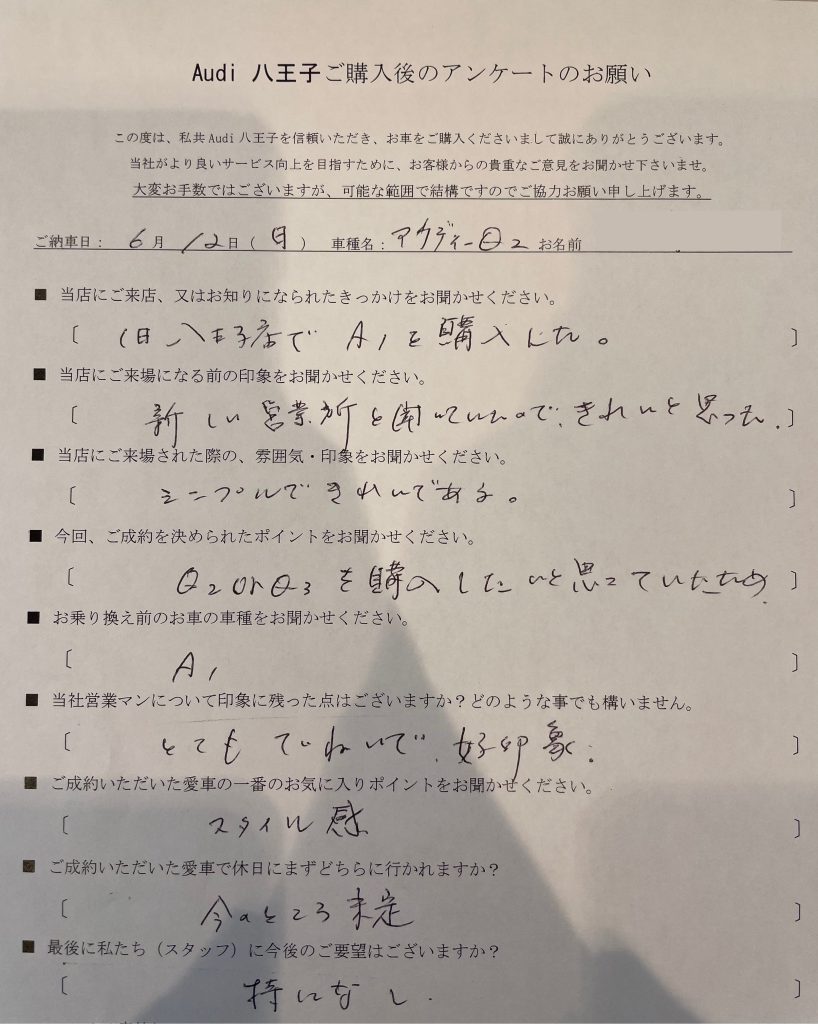 Audi 八王子ご購入後のアンケートのお願い
この度は、私共Audi八王子を信頼いただき、お車をご購入くださいまして誠にありがとうございます。
当社がより良いサービス向上を目指すために、お客様からの貴重なご意見をお聞かせ下さいませ。
大変お手数ではございますが、可能な範囲で結構ですのでご協力お願い申し上げます。
ご納車日: 6月 12日(日) 車種名:アウディーQ2 お名前
■ 当店にご来店、又はお知りになられたきっかけをお聞かせください。
〔 旧八王子店で A1を購入した。 〕
■ 当店にご来場になる前の印象をお聞かせください。
〔 新しい営業所と聞いていたので、きれいと思った。〕
■ 当店にご来場された際の、雰囲気・印象をお聞かせください。
〔 シンプルできれいである。 〕
■ 今回、ご成約を決められたポイントをお聞かせください。
〔 Q2orQ3を購入したいと思っていたため。 〕
■ お乗り換え前のお車の車種をお聞かせください。
〔 A1 〕
■ 当社営業マンについて印象に残った点はございますか?どのような事でも構いません。
〔 とてもていねいで、好印象. 〕
■ ご成約いただいた愛車の一番のお気に入りポイントをお聞かせください。
〔 スタイル感 〕
■ ご成約いただいた愛車で休日にまずどちらに行かれますか?
〔 今のところ未定 〕
■ 最後に私たち(スタッフ)に今後のご要望はございますか?
〔 特になし. 〕